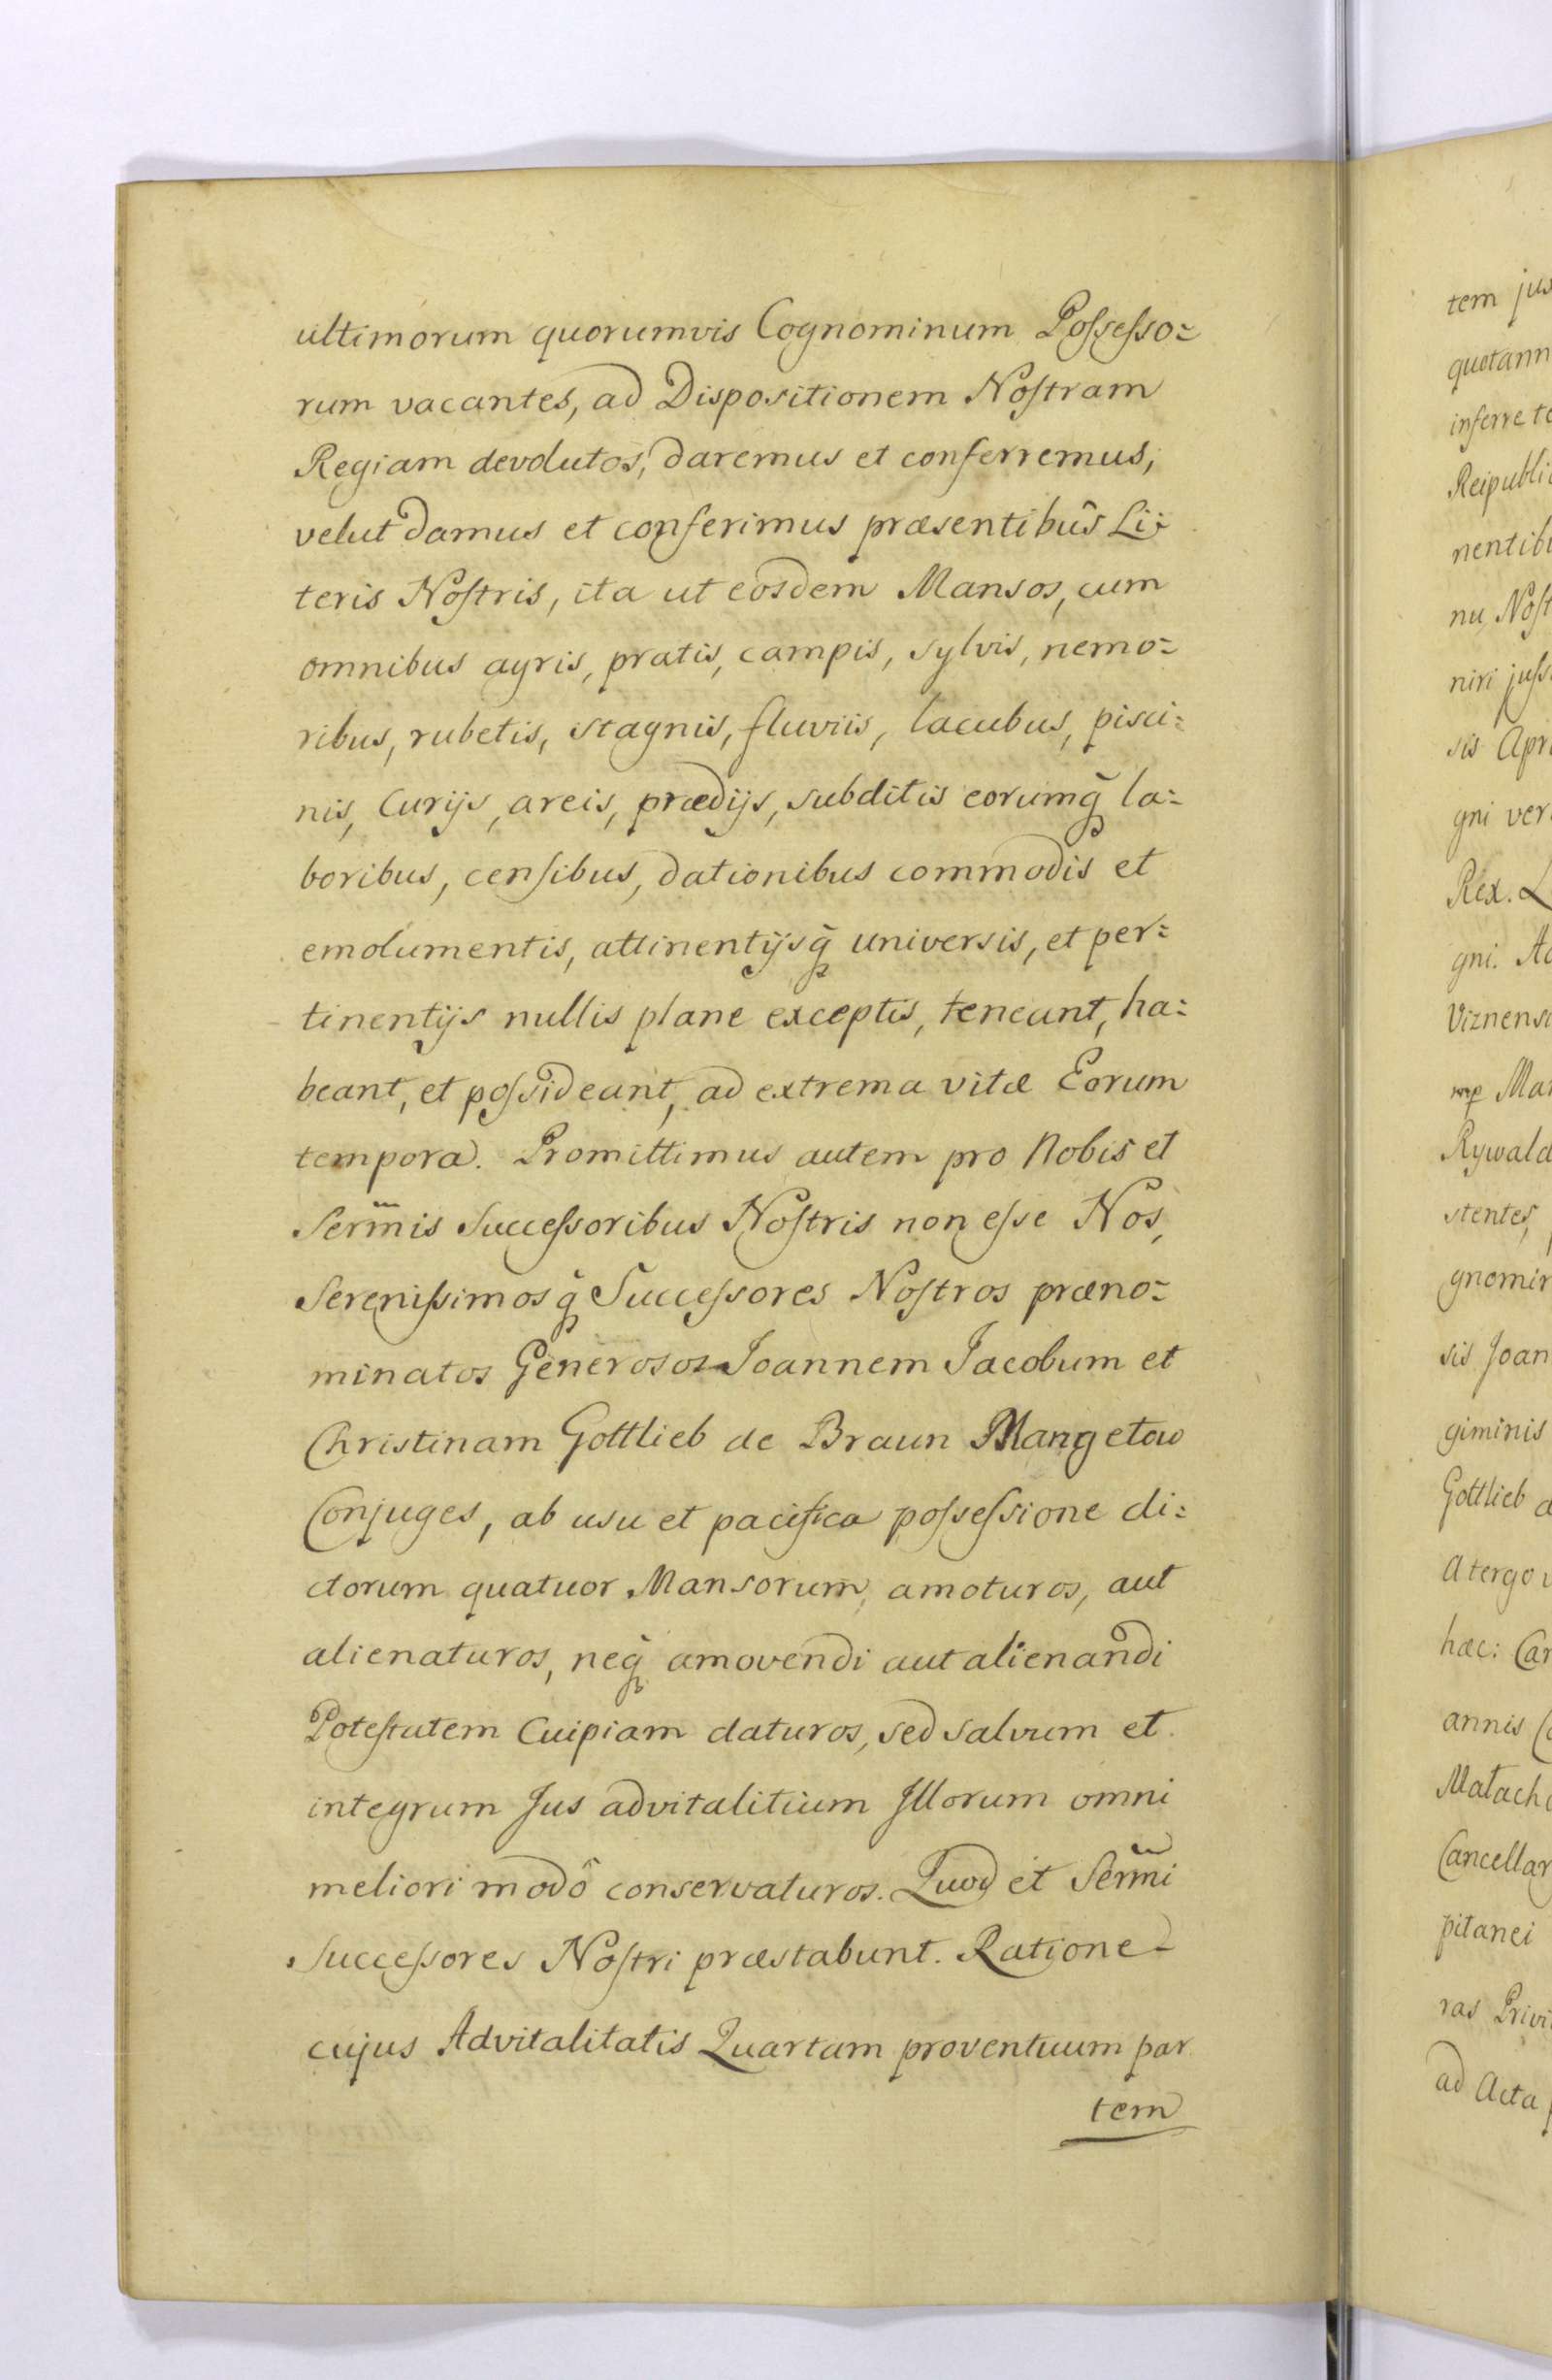 ultimorum quorumvis Cognominum Poſseſso=
rum vacantes, ad Dispositionem Noſtram
Regiam devolutos, daremus et conferremus,
velut damus et conferimus præsentibus Li=
teris Noſtris, ita ut eosdem Mansos, cum
omnibus agris, pratis, campis, sylvis, nemo=
ribus, rubetis, stagnis, fluviis, lacubus, pisci=
nis, Curijs, areis, prædijs, subditis eorumq̃ la=
boribus, cenſibus, dationibus commodis et
emolumentis, attinentijsq̃ universis, et per=
tinentijs nullis plane exceptis, teneant, ha=
beant, et poſsideant, ad extrema vitæ Eorum
tempora. Promittimus autem pro Nobis et
Serm̃is Succeſsoribus Noſtris non eſse Nos,
Sereniſsimosq̃ Succeſsores Noſtros præno=
minatos Generosos Joannem Jacobum et
Christinam Gottlieb de Braun Mangetow
Conjuges, ab usu et pacifica poſseſsione di=
ctorum quatuor Mansorum, amoturos, aut
alienaturos, neq̃ amovendi aut alienandi
Poteſtatem Cuipiam daturos, sed salvum et
integrum Jus advitalitium Illorum omni
meliori modô conservaturos. Quod et Serm̃i
Succeſsores Noſtri præstabunt. Ratione
cujus Advitalitatis Quartam proventuum par
tem
tem jus
quotann
inferre te
Reipubli
nentibu
nu Noſt
niri juſs
sis Apri
gni ver
Rex. L
gni. Ad
Viznens
mp Mar
Rywald
stentes,
gnomin
sis Joan
giminis
Gottlieb d
a tergo v
hæc: Can
annis Co
Matacho
Cancellar
pitanei
ras Privi
ad Acta